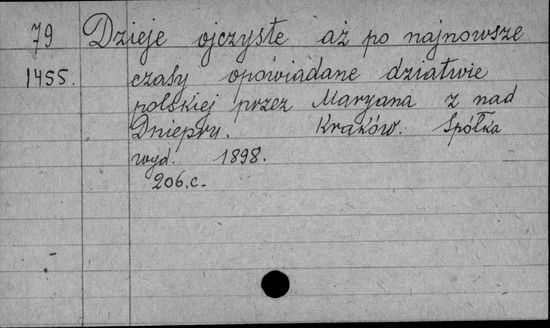 79 Dzieje ojczyste aż po najnowsze
1455. czasy opowiadane dziatwie
polskiej przez Maryana z nad
Dniepru. Kraków. Spółka
wyd. 1898.
206.c.